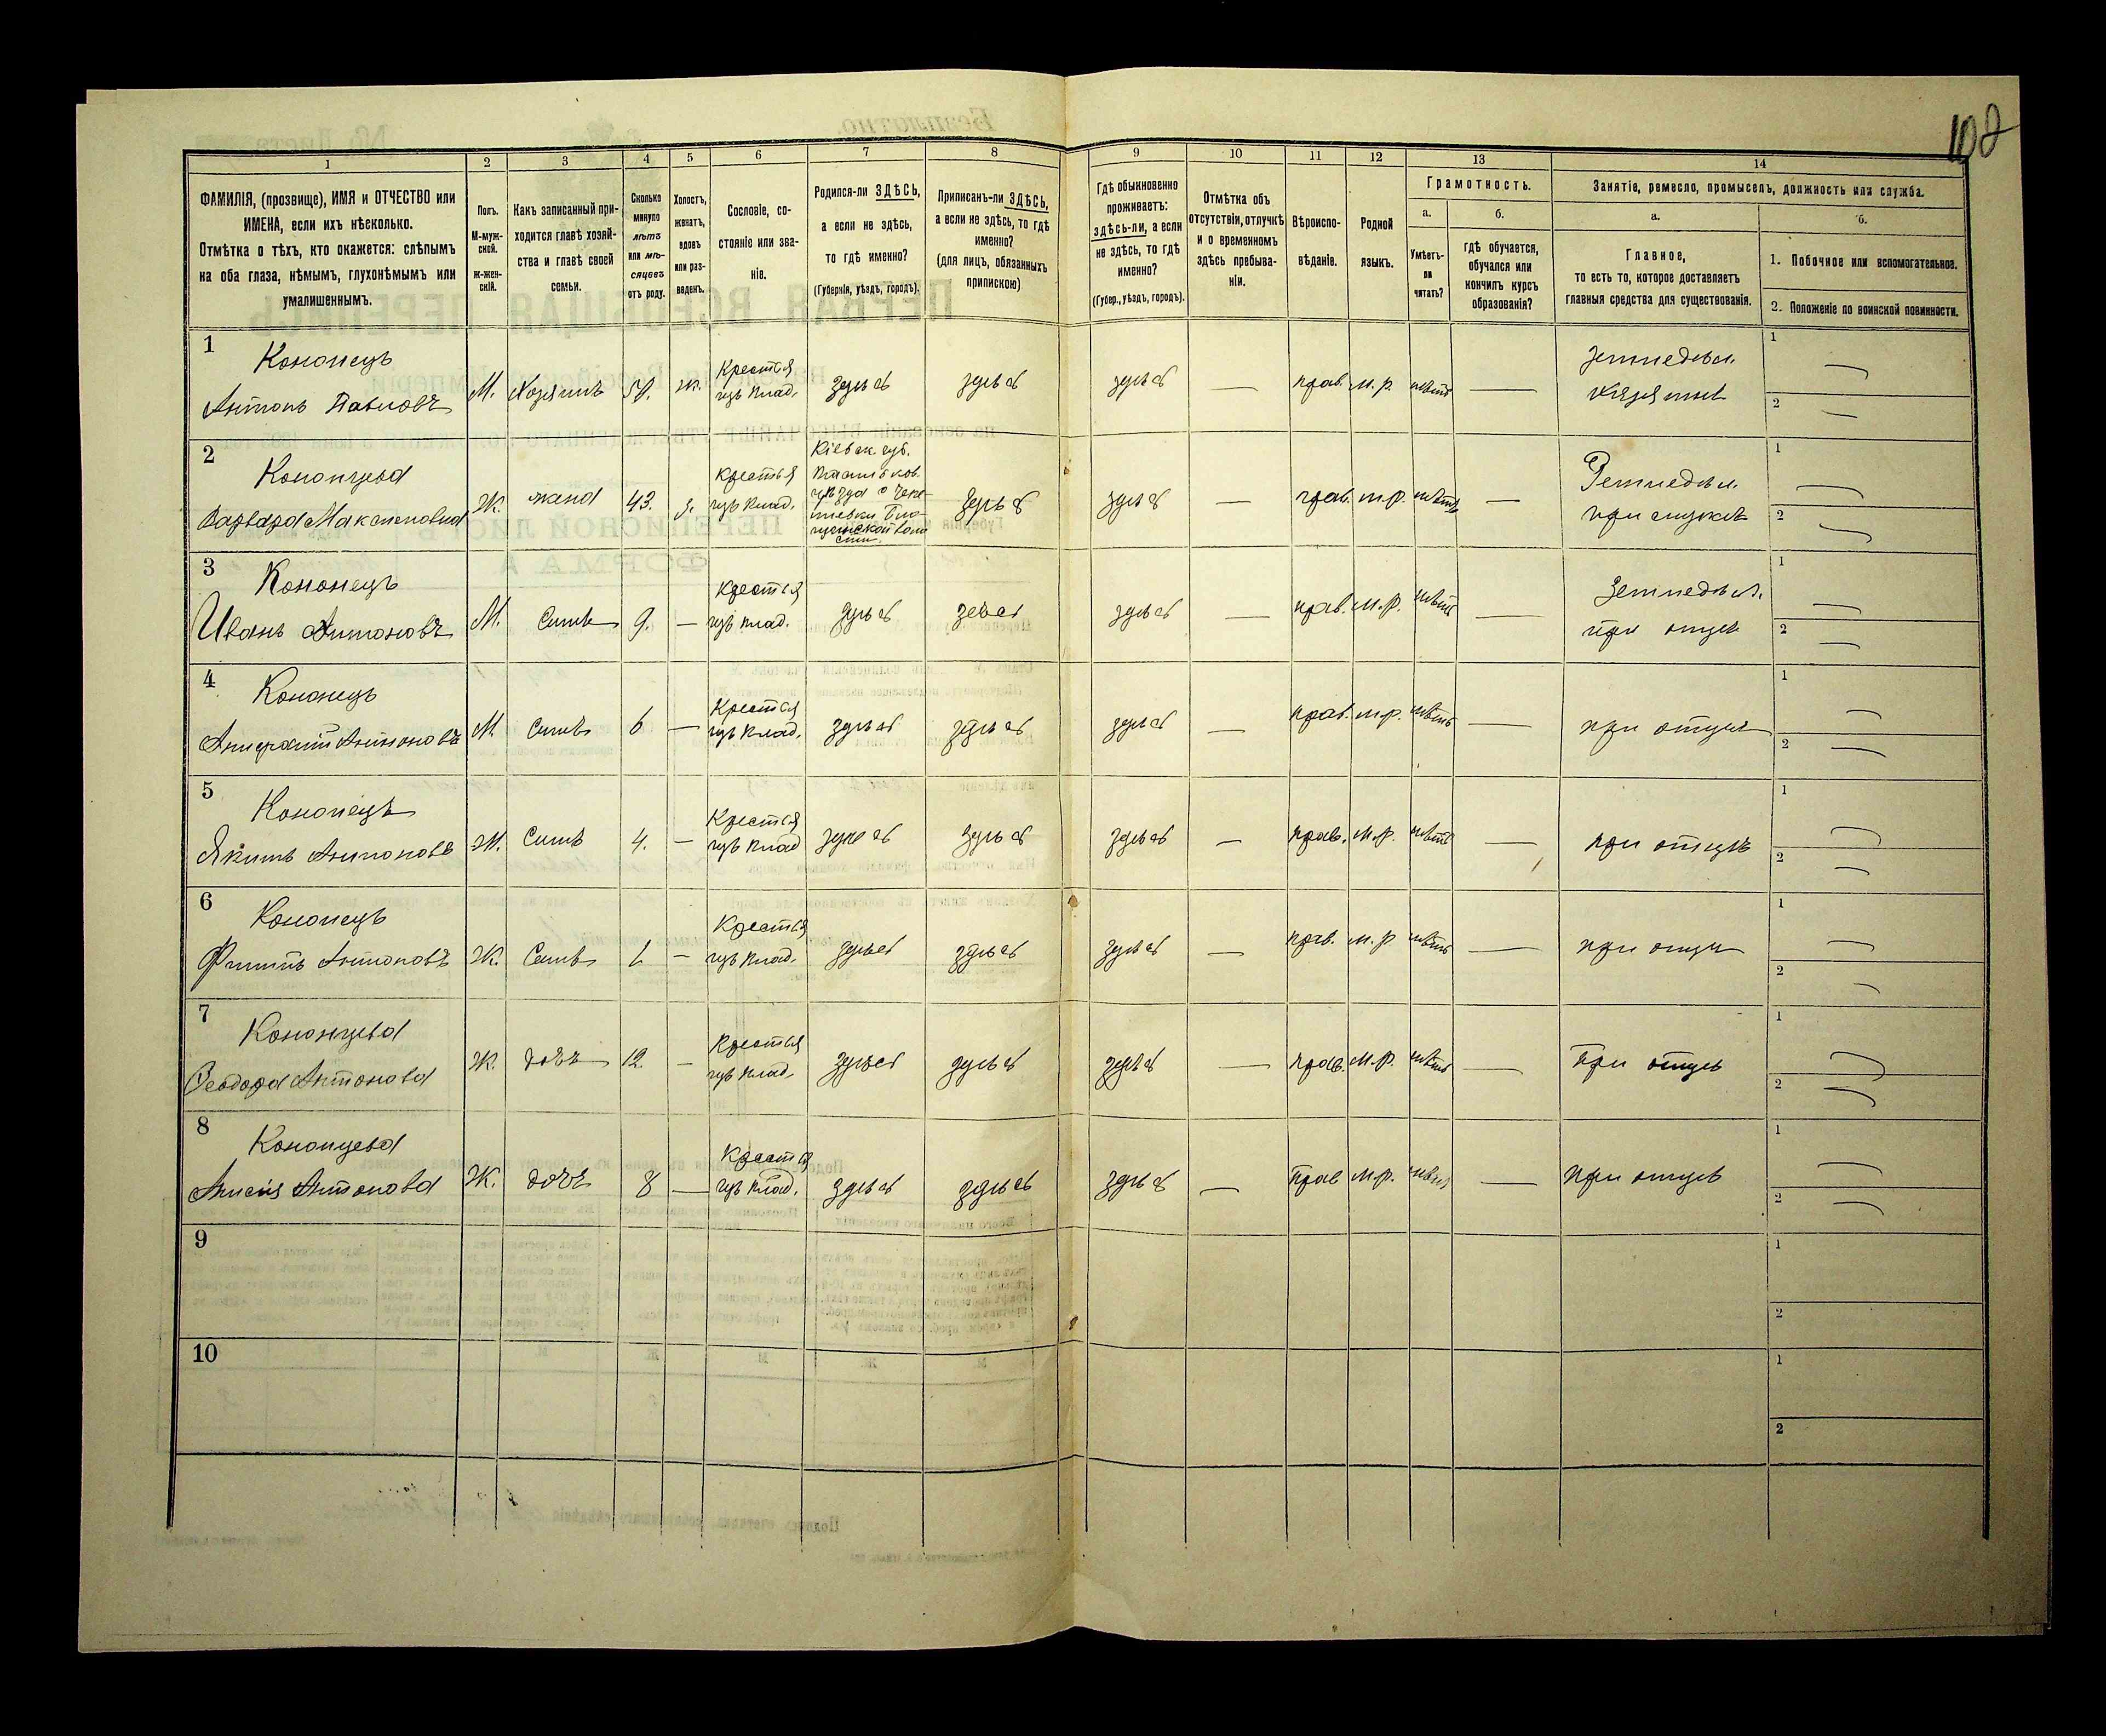 108
1 2 3 4 5 6 7 8 9 10 11 12 13 14
ФАМИЛІЯ, (прозвище), ИМЯ и ОТЧЕСТВО или
ИМЕНА, если ихъ нѣсколько.
Отмѣтка о тѣхъ, кто окажется: слѣпымъ
на оба глаза, нѣмымъ, глухонѣмымъ или
умалишеннымъ.
Полъ.
М-муж-
ской.
ж-жен-
скій.
Какъ записанный при-
ходится главѣ хозяй-
ства и главѣ своей
семьи.
Сколько
минуло
лѣтъ
или мѣ-
сяцевъ
отъ роду.
Холостъ,
женатъ,
вдовъ
или раз-
веденъ.
Сословіе, со-
стояніе или зва-
ніе.
Родился-ли ЗДѢСЬ,
а если не здѣсь,
то гдѣ именно?
(Губернія, уѣздъ, городъ).
Приписанъ-ли ЗДѢСЬ,
а если не здѣсь, то гдѣ
именно?
(для лицъ, обязанныхъ
припискою)
Гдѣ обыкновенно
проживаетъ:
здѣсь-ли, а если
не здѣсь, то гдѣ
именно?
(Губер., уѣздъ, городъ).
Отмѣтка объ
отсутствіи, отлучкѣ
и о временномъ
здѣсь пребыва-
ніи.
Вѣроиспо-
вѣданіе.
Родной
языкъ.
Грамотность.
а.
Умѣетъ-
ли
читать?
б.
гдѣ обучается,
обучался или
кончилъ курсъ
образованія?
Занятіе, ремесло, промыселъ, должность или служба.
а.
Главное,
то есть то, которое доставляетъ
главныя средства для существованія.
б.
1. Побочное или вспомогательное.
2. Положеніе по воинской повинности.
1
Кононецъ
Антонъ Павловъ
М. Хозяинъ ж.
Крестья
изъ влад.
здѣсь здѣсь здѣсь — прав. м.р. нѣтъ —
Земледѣл.
хозяинъ
1 —
2 —
2
Кононцева
Варвара Максимовна
Ж. жена 43.
Крестья
изъ влад.
Кіевск. губ.
здѣсь здѣсь — прав. м.р. нѣтъ —
Земледѣл.
при мужѣ
1 —
2 —
3
Кононецъ
Иванъ Антоновъ
М. Сынъ 9. —
Крестья
изъ влад.
здѣсь здѣсь здѣсь — прав. м.р. нѣтъ —
Земледѣл.
при отцѣ
1 —
2 —
4
Кононецъ
Антоновъ
М. Сынъ 6 —
Крестья
изъ влад.
здѣсь здѣсь здѣсь — прав. м.р. нѣтъ —
при отцѣ
1 —
2 —
5
Кононецъ
Якимъ Антоновъ
Ж. Сынъ 4. —
Крестья
изъ влад
здѣсь здѣсь здѣсь — прав. м.р. нѣтъ —
при отцѣ
1 —
2 —
6
Кононецъ
Филипъ Антоновъ
Ж. Сынъ 1 —
Крестья
изъ влад.
здѣсь здѣсь здѣсь — прав. м.р нѣтъ —
при отцѣ
1 —
2 —
7
Кононцева
Феодора Антонова
Ж. дочь 12. —
Крестья
изъ влад.
здѣсь здѣсь здѣсь — прав. м.р. нѣтъ —
при отцѣ
1 —
2 —
8
Кононцева
Антонова
Ж. дочь 8 —
Крестья
изъ влад.
здѣсь здѣсь здѣсь — прав м.р. нѣтъ —
при отцѣ
1 —
2 —
9
1
2
10
1
2